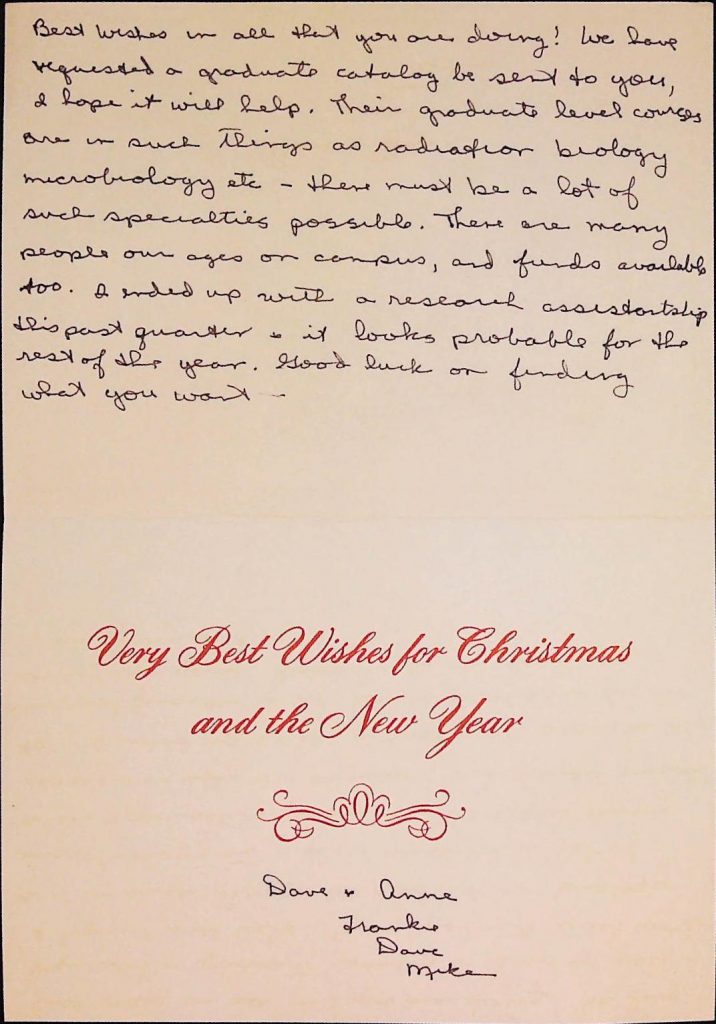 Best Wishes in all that you are doing! We have
requested a graduate catalog be sent to you,
I hope it will help. Their graduate level courses
are in such things as radiation biology
microbiology etc - there must be a lot of
such specialties possible. There are many
people our ages on campus, and funds available
too. I ended up with a research assistantship
this past quarter & it looks probable for the
rest of the year. Good luck on finding
what you want -
Very Best Wishes for Christmas
and the New Year
Dave & Anne
Frankie
Dave
Mike